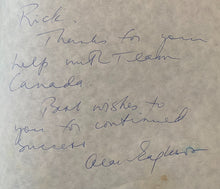 Rick.
Thanks for your
help with Team
Canada.
Best wishes to
you for continued
success
Alan Eagleson